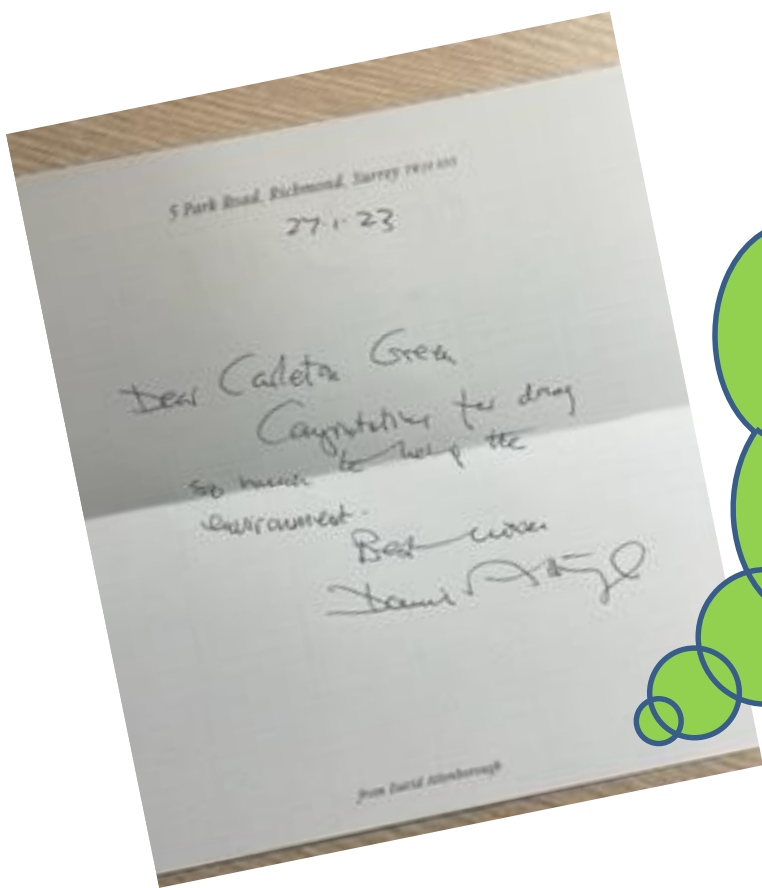 5 Park Road, Richmond, Surrey
27.1.23
Dear Carleton Green
Congratulations for doing
so much to help the
environment.
Best wishes
David Attenborough
from David Attenborough